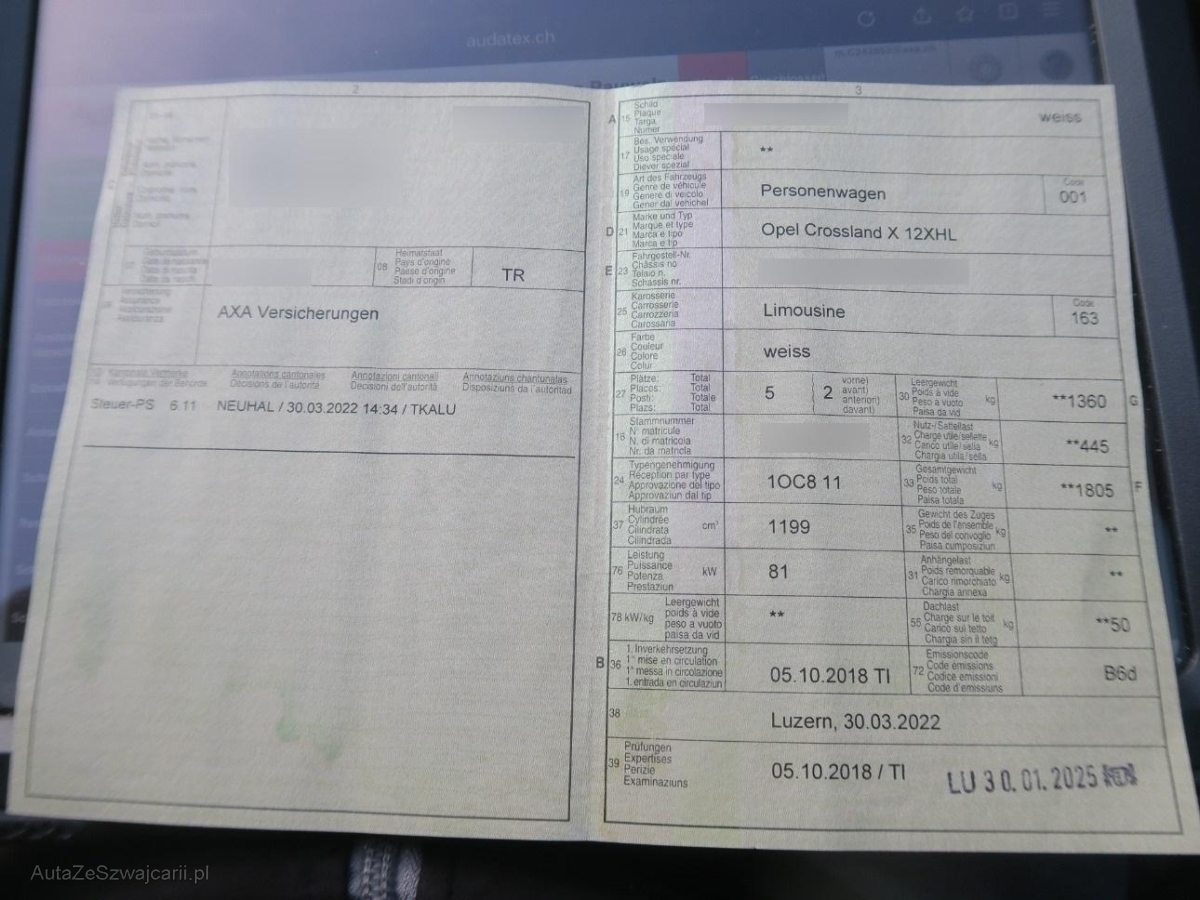 audatex.ch
2
08
Heimatstaat
Pays d'origine
Paese d'origine
Stadi d'origin
TR
AXA Versicherungen
Annotations cantonales
Annotazioni cantonali
Annotaziuns chantunalas
Verfügungen der Behörde
Décisions de l'autorité
Decisioni dell'autorità
Disposiziuns da l'autoritad
Steuer-PS 6.11 NEUHAL / 30.03.2022 14:34 / TKALU
3
A 15
Schild
Plaque
Targa
Numer
weiss
17
Bes. Verwendung
Usage spécial
Uso speciale
Diever spezial
**
19
Art des Fahrzeugs
Genre de véhicule
Genere di veicolo
Gener dal vehichel
Personenwagen
Code
001
D 21
Marke und Typ
Marque et type
Marca e tipo
Marca e tip
Opel Crossland X 12XHL
E 23
Fahrgestell-Nr.
Châssis no
Telaio n.
Schassis nr.
25
Karosserie
Carrosserie
Carrozzeria
Carossaria
Limousine
Code
163
26
Farbe
Couleur
Colore
Colur
weiss
27
Plätze: Total
Places: Total
Posti: Totale
Plazs: Total
5
2
vorne)
avant)
anteriori)
davant)
30
Leergewicht
Poids à vide
Peso a vuoto
Paisa da vid
kg
**1360
G
18
Stammnummer
N° matricule
N. di matricola
Nr. da matricla
32
Nutz-/Sattellast
Charge utile/sellette
Carico utile/sella
Chargia utila/sella
kg
**445
24
Typengenehmigung
Réception par type
Approvazione del tipo
Approvaziun dal tip
1OC8 11
33
Gesamtgewicht
Poids total
Peso totale
Paisa totala
kg
**1805
F
37
Hubraum
Cylindrée
Cilindrata
Cilindrada
cm³
1199
35
Gewicht des Zuges
Poids de l'ensemble
Peso del convoglio
Paisa cumposiziun
kg
**
76
Leistung
Puissance
Potenza
Prestaziun
kW
81
31
Anhängelast
Poids remorquable
Carico rimorchiato
Chargia annexa
kg
**
78 kW/kg
Leergewicht
poids à vide
peso a vuoto
paisa da vid
**
55
Dachlast
Charge sur le toit
Carico sul tetto
Chargia sin il tetg
kg
**50
B 36
1. Inverkehrsetzung
1° mise en circulation
1° messa in circolazione
1. entrada en circulaziun
05.10.2018 TI
72
Emissionscode
Code émissions
Codice emissioni
Code d'emissiuns
B6d
38
Luzern, 30.03.2022
39
Prüfungen
Expertises
Perizie
Examinaziuns
05.10.2018 / TI
LU 30.01.2025
AutaZeSzwajcarii.pl